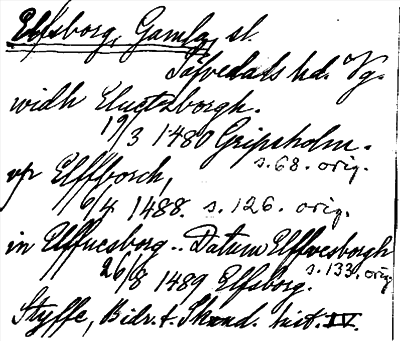 Elfsborg, Gamla, sl.
Sävedals hd. Vg.
widh Eluetzborgh.
19/3 1480 Gripsholm.
s. 68. orig.
vp Elffborch,
6/4 1488. s. 126. orig.
in Elffuesborg.. Datum Elffvesborgh
26/8 1489 Elfsborg. s. 133. orig.
Styffe, Bidr. t. Skand. hist. IV.